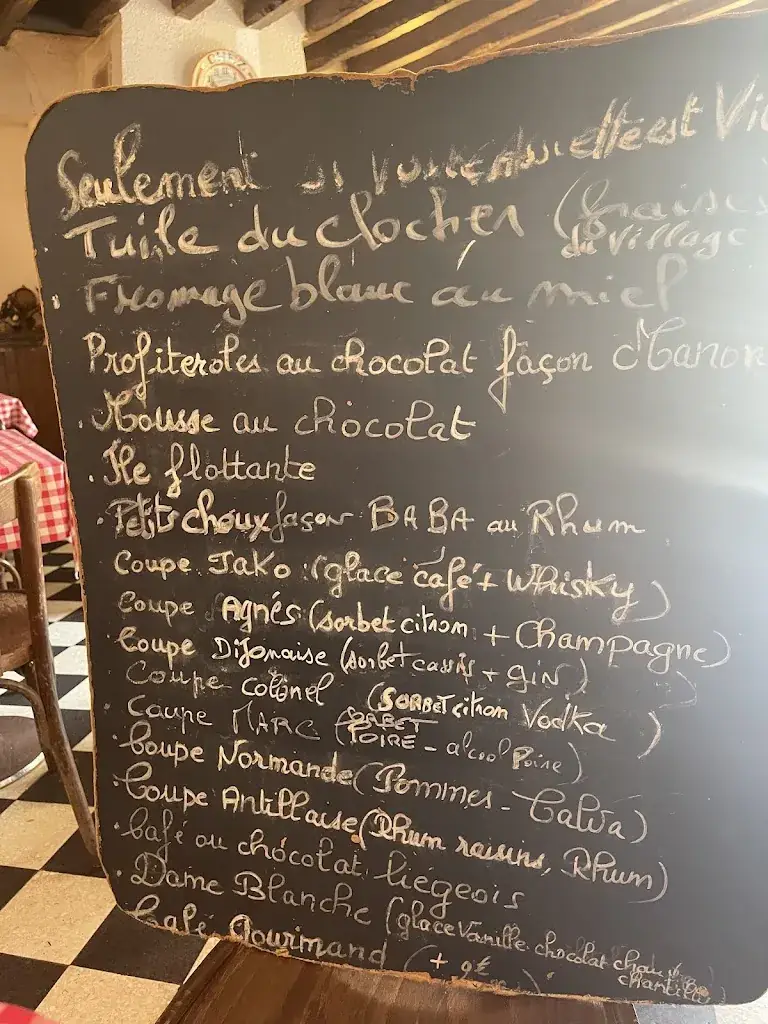 Seulement si votre Assiette est Vi
Tuile du clocher (fraises
du village
Fromage blanc au miel
Profiteroles au chocolat façon Manon
. Mousse au chocolat
. Ile flottante
. Petits choux façon BABA au Rhum
Coupe Jako (glace café + Whisky)
Coupe Agnés (sorbet citron + Champagne)
Coupe Dijonaise (sorbet cassis + gin)
Coupe colonel (SORBET citron Vodka)
Coupe MARC (SORBET
POIRE - alcool Poire)
Coupe Normande (Pommes - Calva)
Coupe Antillaise (Rhum raisins, Rhum)
. Café ou chocolat liegeois
. Dame Blanche (glace Vanille chocolat chaud
chantilly
Café Gourmand (+ 9€